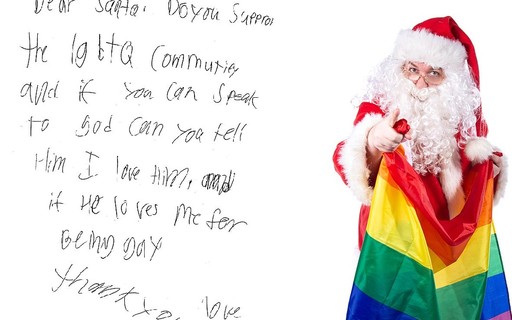 Dear Santa. Do you Suppor
the lgbtQ Community
and if you can Speak
to god can you tell
Him I love Him, and
if He loves me for
Being gay
Thank you
love